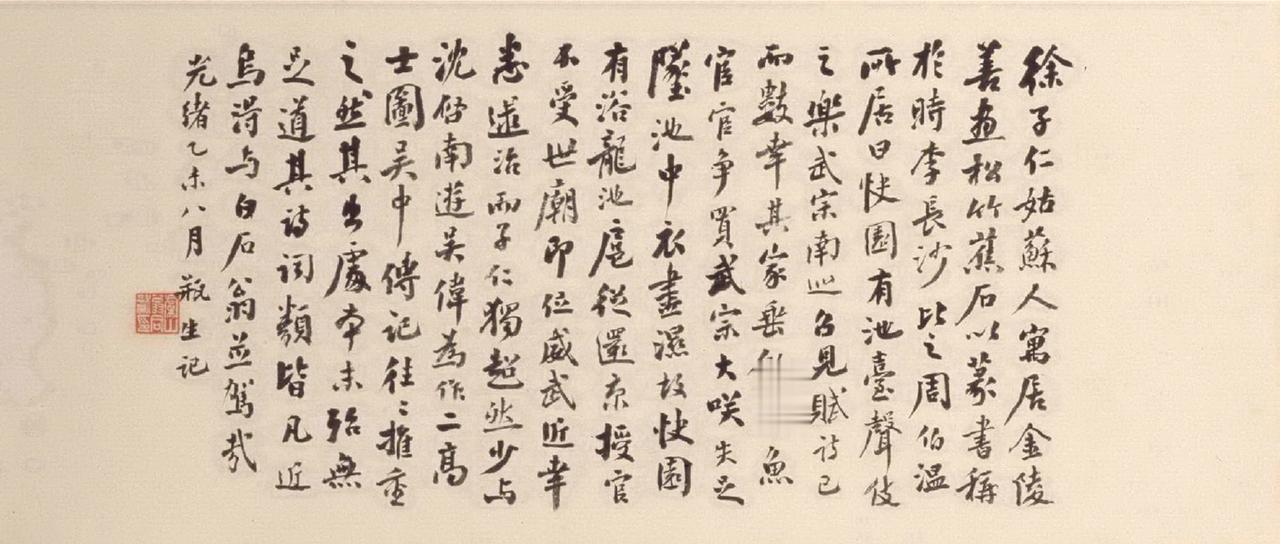 徐子仁姑蘇人寓居金陵
善畫松竹蕉石以篆書稱
於時李長沙比之周伯溫
所居曰快園有池臺聲伎
之樂武宗南巡召見賦詩已
而數幸其家垂 魚
宦官爭買武宗大咲失足
墜池中衣盡濕故快園
有浴龍池扈從還京授官
不受世廟即位威武近幸
悉逮治而子仁獨超然少与
沈啓南遊吳偉為作二高
士圖吳中傳記往往推重
之然其出處本末殆無
足道其詩詞類皆凡近
烏得与白石翁並駕哉
光緒乙未八月瓶生記